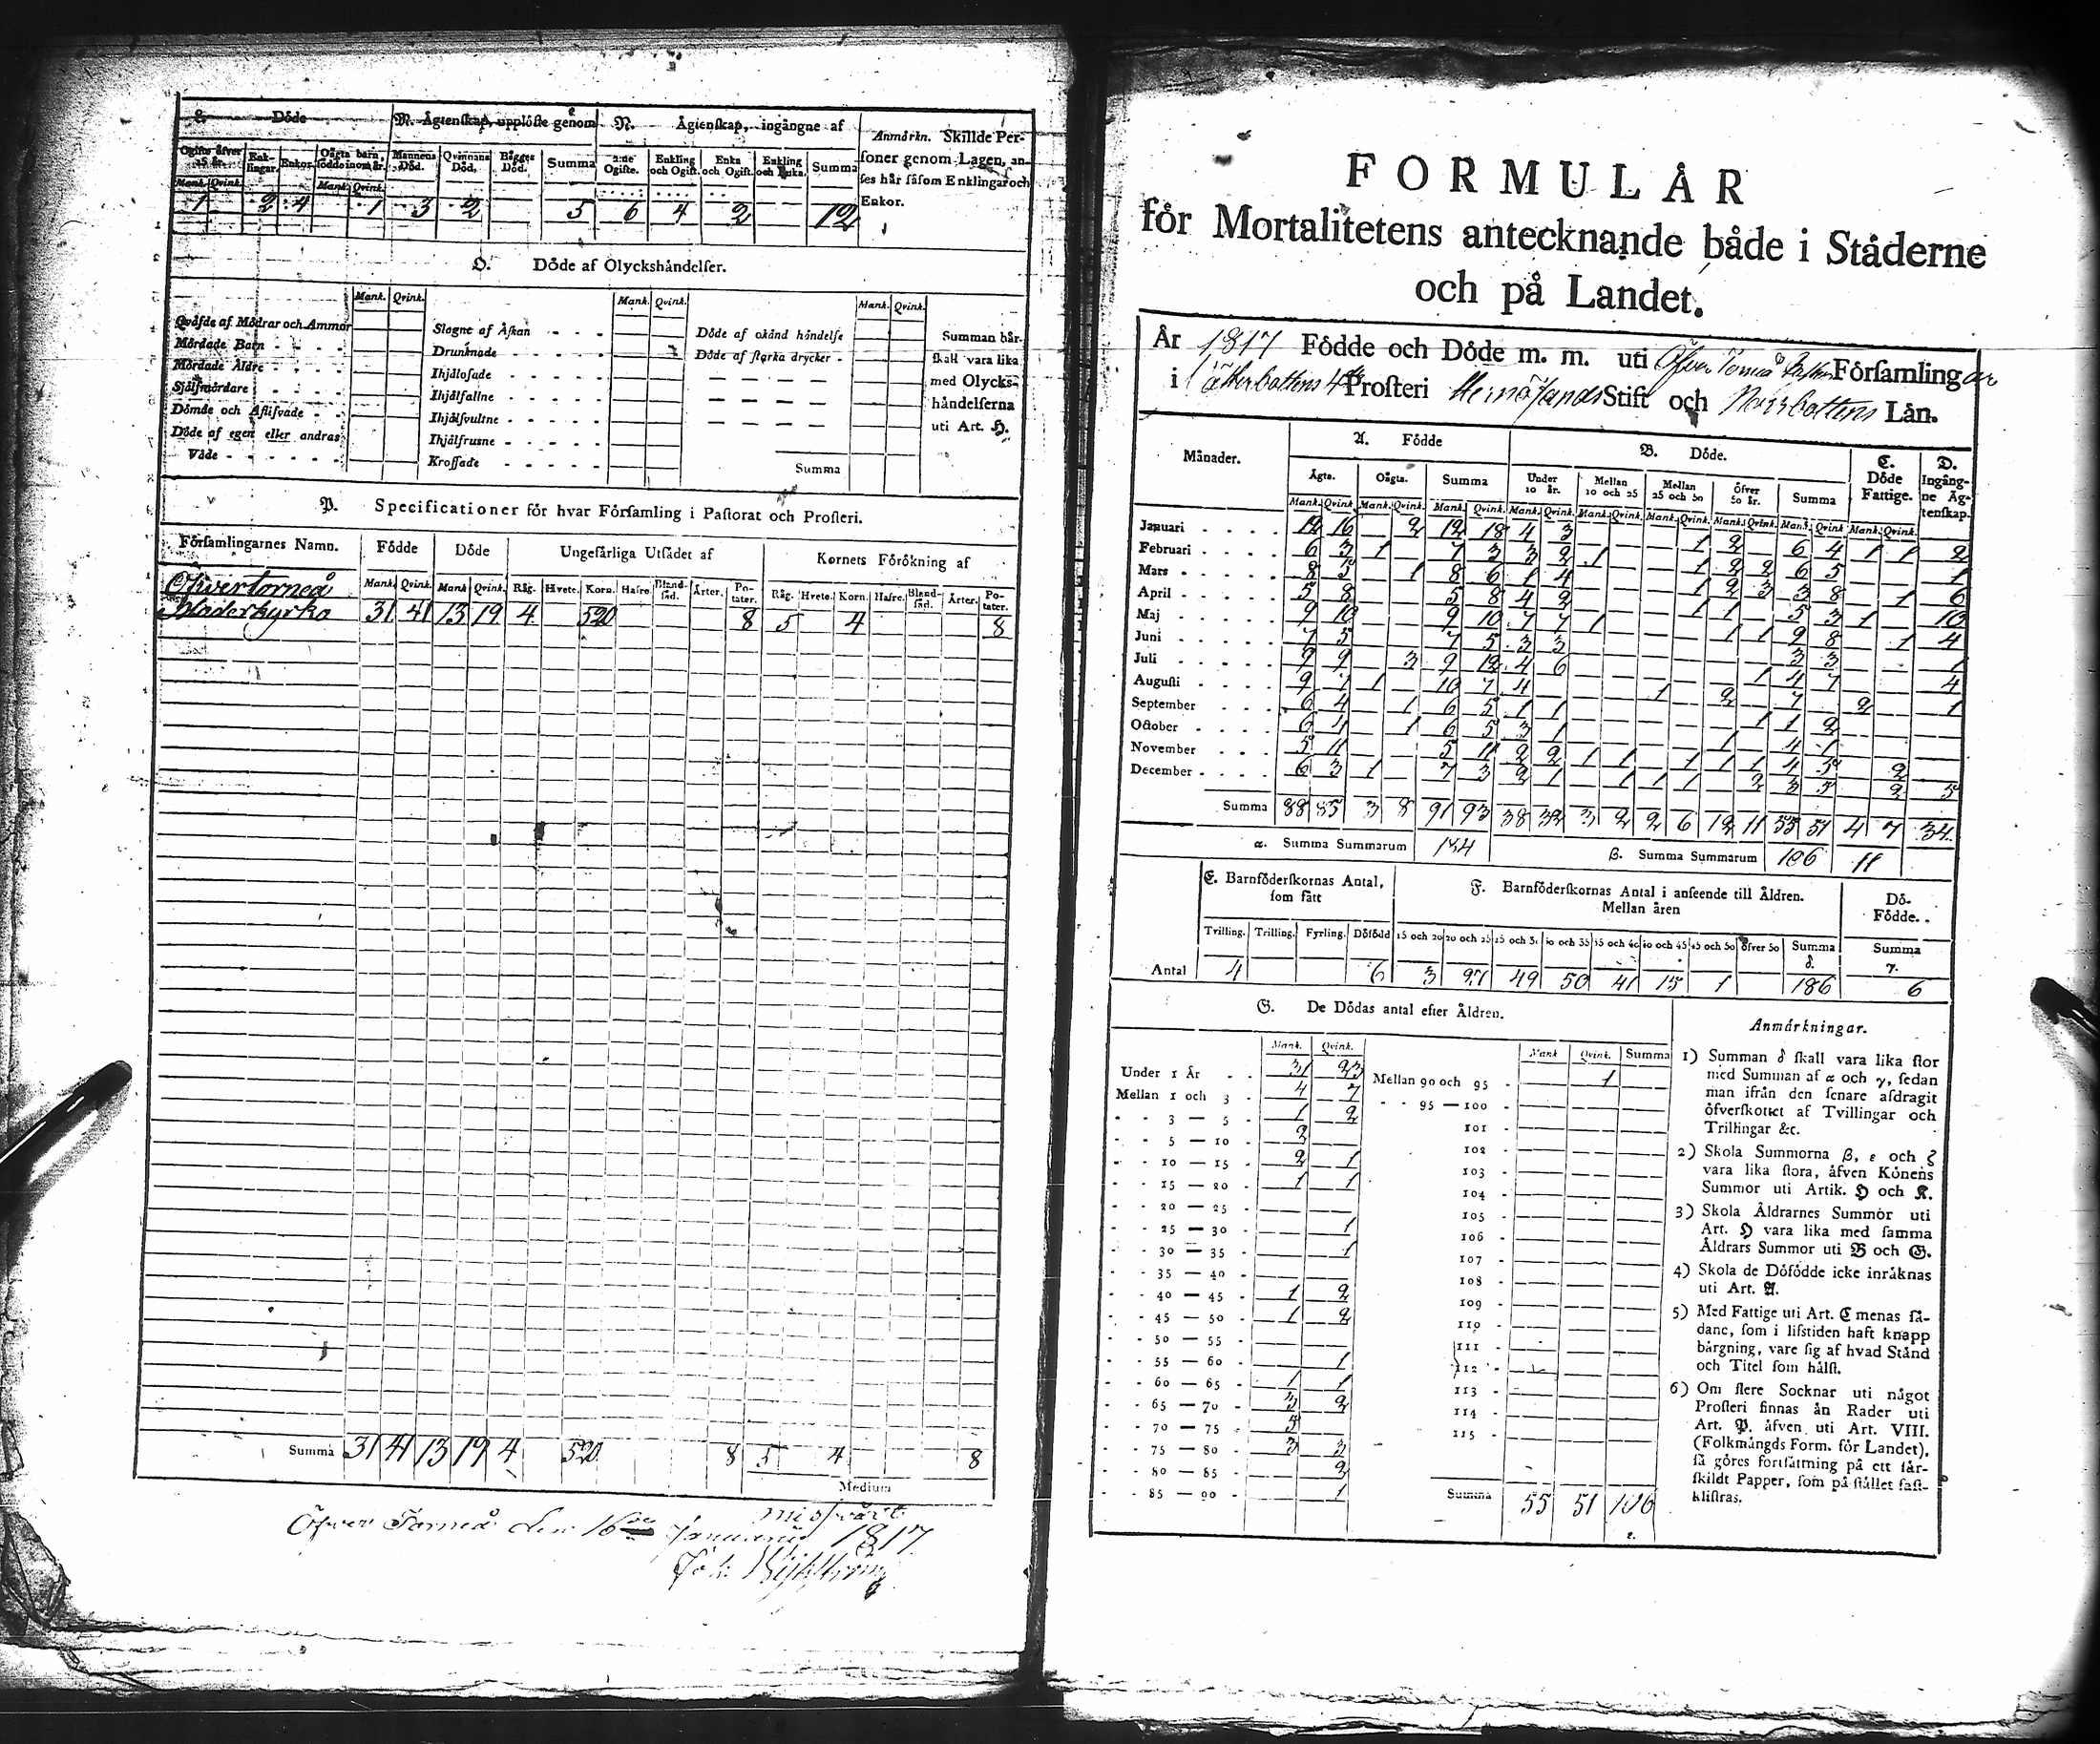 L. Döde
M. Ägtenskap, upplöste genom
N. Ägtenskap, ingångne af
Anmärkn. Skillde Per-
soner genom Lagen, an-
ses här såsom Enklingar och
Enkor.
Ogifte öfver 25 år. Enk-lingar. Enkor. Oägta barn, födde inom år. Mannens Död. Qvinnans Död. Bägges Död. Summa 2:ne Ogifte. Enkling och Ogift. Enka och Ogift. Enkling och Enka. Summa
Mank. Qvink. Mank. Qvink.
1 2 4 1 3 2 5 6 4 2 12
O. Döde af Olyckshändelser.
Mank. Qvink. Mank. Qvink. Mank. Qvink.
Qväfde af Mödrar och Ammor
Mördade Barn
Mördade Äldre
Självmördare
Dömde och Aflifvade
Döde af egen eller andras
Våde
Slagne af Åskan
Drunknade
Ihjälosade
Ihjälfallne
Ihjälsvultne
Ihjälfrusne
Krossade
Döde af okänd händelse
Döde af starka drycker
Summa
Summan här-
skall vara lika
med Olycks-
händelserna
uti Art. H.
P. Specificationer för hvar Församling i Pastorat och Prosteri.
Församlingarnes Namn. Födde Döde Ungefärliga Utsädet af Kornets Förökning af
Mank. Qvink. Mank. Qvink. Råg. Hvete. Korn. Hafre. Bland-säd. Ärter. Po-tater. Råg. Hvete. Korn. Hafre. Bland-säd. Ärter. Po-tater.
Öfvertorneå
Moderkyrka 31 41 13 19 4 520 8 5 4 8
Summa 31 41 13 19 4 520 8 5 4 8
Medium
missvärt
Öfver Torneå den 16de Januarii 1817
Joh.
FORMULÄR
för Mortalitetens antecknande både i Städerne
och på Landet.
År 1817 Födde och Döde m. m. uti Öfver Torneå Församlingar
i Wästerbottens 4de Prosteri Hernösands Stift och Norrbottens Län.
Månader. A. Födde B. Döde. C. Döde Fattige. D. Ingång-ne Äg-tenskap.
Ägta. Oägta. Summa Under 10 år. Mellan 10 och 25 Mellan 25 och 50 Öfver 50 år. Summa
Mank. Qvink. Mank. Qvink. Mank. Qvink. Mank. Qvink. Mank. Qvink. Mank. Qvink. Mank. Qvink. Mank. Qvink. Mank. Qvink.
Januari 12 16 2 12 18 4 3 1 2 6 4 1 1 2
Februari 6 3 1 7 3 3 2 1 1 2 2 6 5 1
Mars 8 5 1 8 6 1 4 1 2 3 3 8 1 6
April 5 8 5 8 4 2 1 1 5 3 1 10
Maj 9 10 9 10 7 7 1 1 1 9 8 1 4
Juni 7 5 7 5 3 3 3 3 1
Juli 9 9 3 9 12 4 6 1 4 7 4
Augusti 9 7 1 10 7 4 1 2 7 2 1
September 6 4 1 6 5 1 1 1 1 2
October 6 4 1 6 5 3 1 1 4 1
November 5 11 5 11 2 2 1 1 1 1 1 4 5 2
December 6 3 1 7 3 2 1 1 1 1 2 3 5 2 5
Summa 88 85 3 8 91 93 38 32 3 2 2 6 12 11 55 51 4 7 34
α. Summa Summarum 184 β. Summa Summarum 106 11
E. Barnföderskornas Antal, som fått
F. Barnföderskornas Antal i anseende till Åldren.
Mellan åren
Dö-Födde.
Trilling. Trilling. Fyrling. Döfödd 15 och 20 20 och 25 25 och 30 30 och 35 35 och 40 40 och 45 45 och 50 öfver 50 Summa δ. Summa γ.
Antal 4 6 3 27 49 50 41 15 1 186 6
G. De Dödas antal efter Åldren.
Mank. Qvink. Mank Qvink. Summa
Under 1 År 31 23
Mellan 1 och 3 4 7
3 — 5 1 2
5 — 10 2
10 — 15 2 1
15 — 20 1 1
20 — 25
25 — 30 1
30 — 35 1
35 — 40
40 — 45 1 2
45 — 50 1 2
50 — 55
55 — 60 1
60 — 65 1 1
65 — 70 3 2
70 — 75 5
75 — 80 3 3
80 — 85 2
85 — 90 1
Mellan 90 och 95 1
95 — 100
101
102
103
104
105
106
107
108
109
110
111
112
113
114
115
Summa 55 51 106
ε.
Anmärkningar.
1) Summan δ skall vara lika stor
med Summan af α och γ, sedan
man ifrån den senare afdragit
öfverskottet af Tvillingar och
Trillingar &c.
2) Skola Summorna β, ε och ζ
vara lika stora, äfven Könens
Summor uti Artik. H och K.
3) Skola Åldrarnes Summor uti
Art. H vara lika med samma
Åldrars Summor uti B och G.
4) Skola de Döfödde icke inräknas
uti Art. A.
5) Med Fattige uti Art. C menas så-
dane, som i lifstiden haft knapp
bärgning, vare sig af hvad Stånd
och Titel som hälst.
6) Om flere Socknar uti något
Prosteri finnas än Rader uti
Art. P. äfven uti Art. VIII.
(Folkmängds Form. för Landet),
så göres fortsättning på ett sär-
skildt Papper, som på stället fast-
klistras.